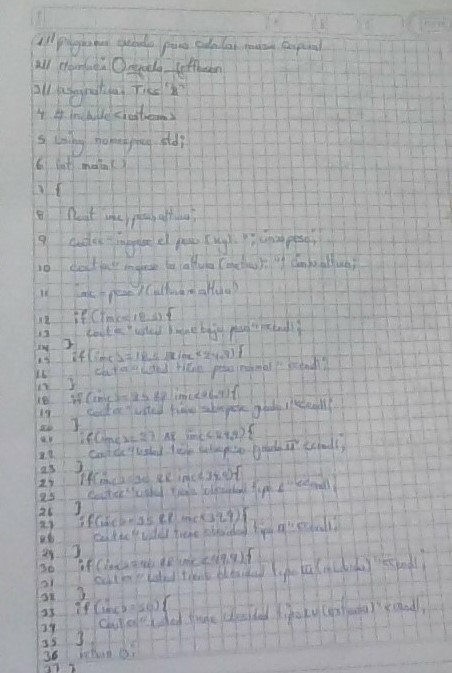 1 // programa creado para calcular masa corporal
2 //
3 // asignatura: Tics "2"
4 # include <iostream>
5 using namespace std;
6 int main ()
7 {
8 float imc, peso, altura;
9 cout<<"ingrese el peso (kg): "; cin>>peso;
10 cout<<"ingrese la altura (metros): "; cin>>altura;
11 imc = peso / (altura * altura)
12 if (imc<18.5) {
13 cout<<"usted tiene bajo peso"<<endl;
14 }
15 if (imc>=18.5 && imc<24.9) {
16 cout<<"usted tiene peso normal"<<endl;
17 }
18 if (imc>=25 && imc<26.9) {
19 cout<<"usted tiene sobrepeso grado I"<<endl;
20 }
21 if (imc>=27 && imc<29.9) {
22 cout<<"usted tiene sobrepeso grado II"<<endl;
23 }
24 if (imc>=30 && imc<34.9) {
25 cout<<"usted tiene obesidad tipo I"<<endl;
26 }
27 if (imc>=35 && imc<39.9) {
28 cout<<"usted tiene obesidad tipo II"<<endl;
29 }
30 if (imc>=40 && imc<49.9) {
31 cout<<"usted tiene obesidad tipo III (morbida)"<<endl;
32 }
33 if (imc>=50) {
34 cout<<"usted tiene obesidad tipo IV (extrema)"<<endl;
35 }
36 return 0;
37 }